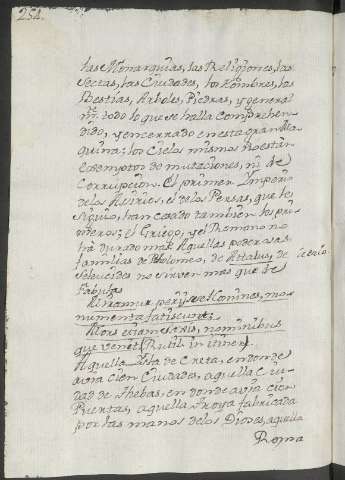 252.
las Monarquias, las Religiones, las
Sectas, las Ciudades, los Hombres, las
Bestias, Arboles, Piedras, y general
mte. todo lo que se halla comprehen
dido, y encerrado en esta gran Ma
quina; los Cielos mismos no estàn
exemptos de mutaciones, ni de
Corrupcion. El primer Imperio
de los Asirios, el de los Persas, que le
siguio, han caido tambien los pri
meros; el Griego, y el Romano no
ha durado mas. Aquellas poderosas
familias de Ptolomeo, de Attalus, de
Seleucides no sirven mas que de
Fabulas
Miramur perijsse Homines, mo
numenta fatiscunt;
Mors etiam saxis, nominibus
que venit (Rutil. in itiner.)
Aquella Isla de Creta, en donde
avia cien Ciudades, aquella Ciu
dad de Thebas, en donde avia cien
Puertas, aquella Troya fabricada
por las manos de los Dioses, aquella
Roma